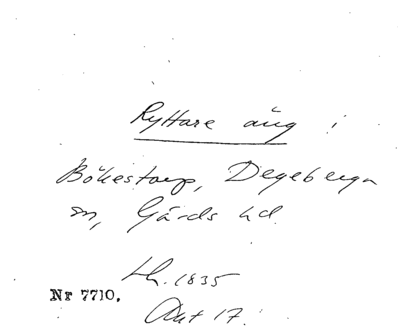 Ryttare äng i
Bökestorp, Degeberga
sn, Gärds hd.
Lh. 1835
Nr 7710.
Akt 17.